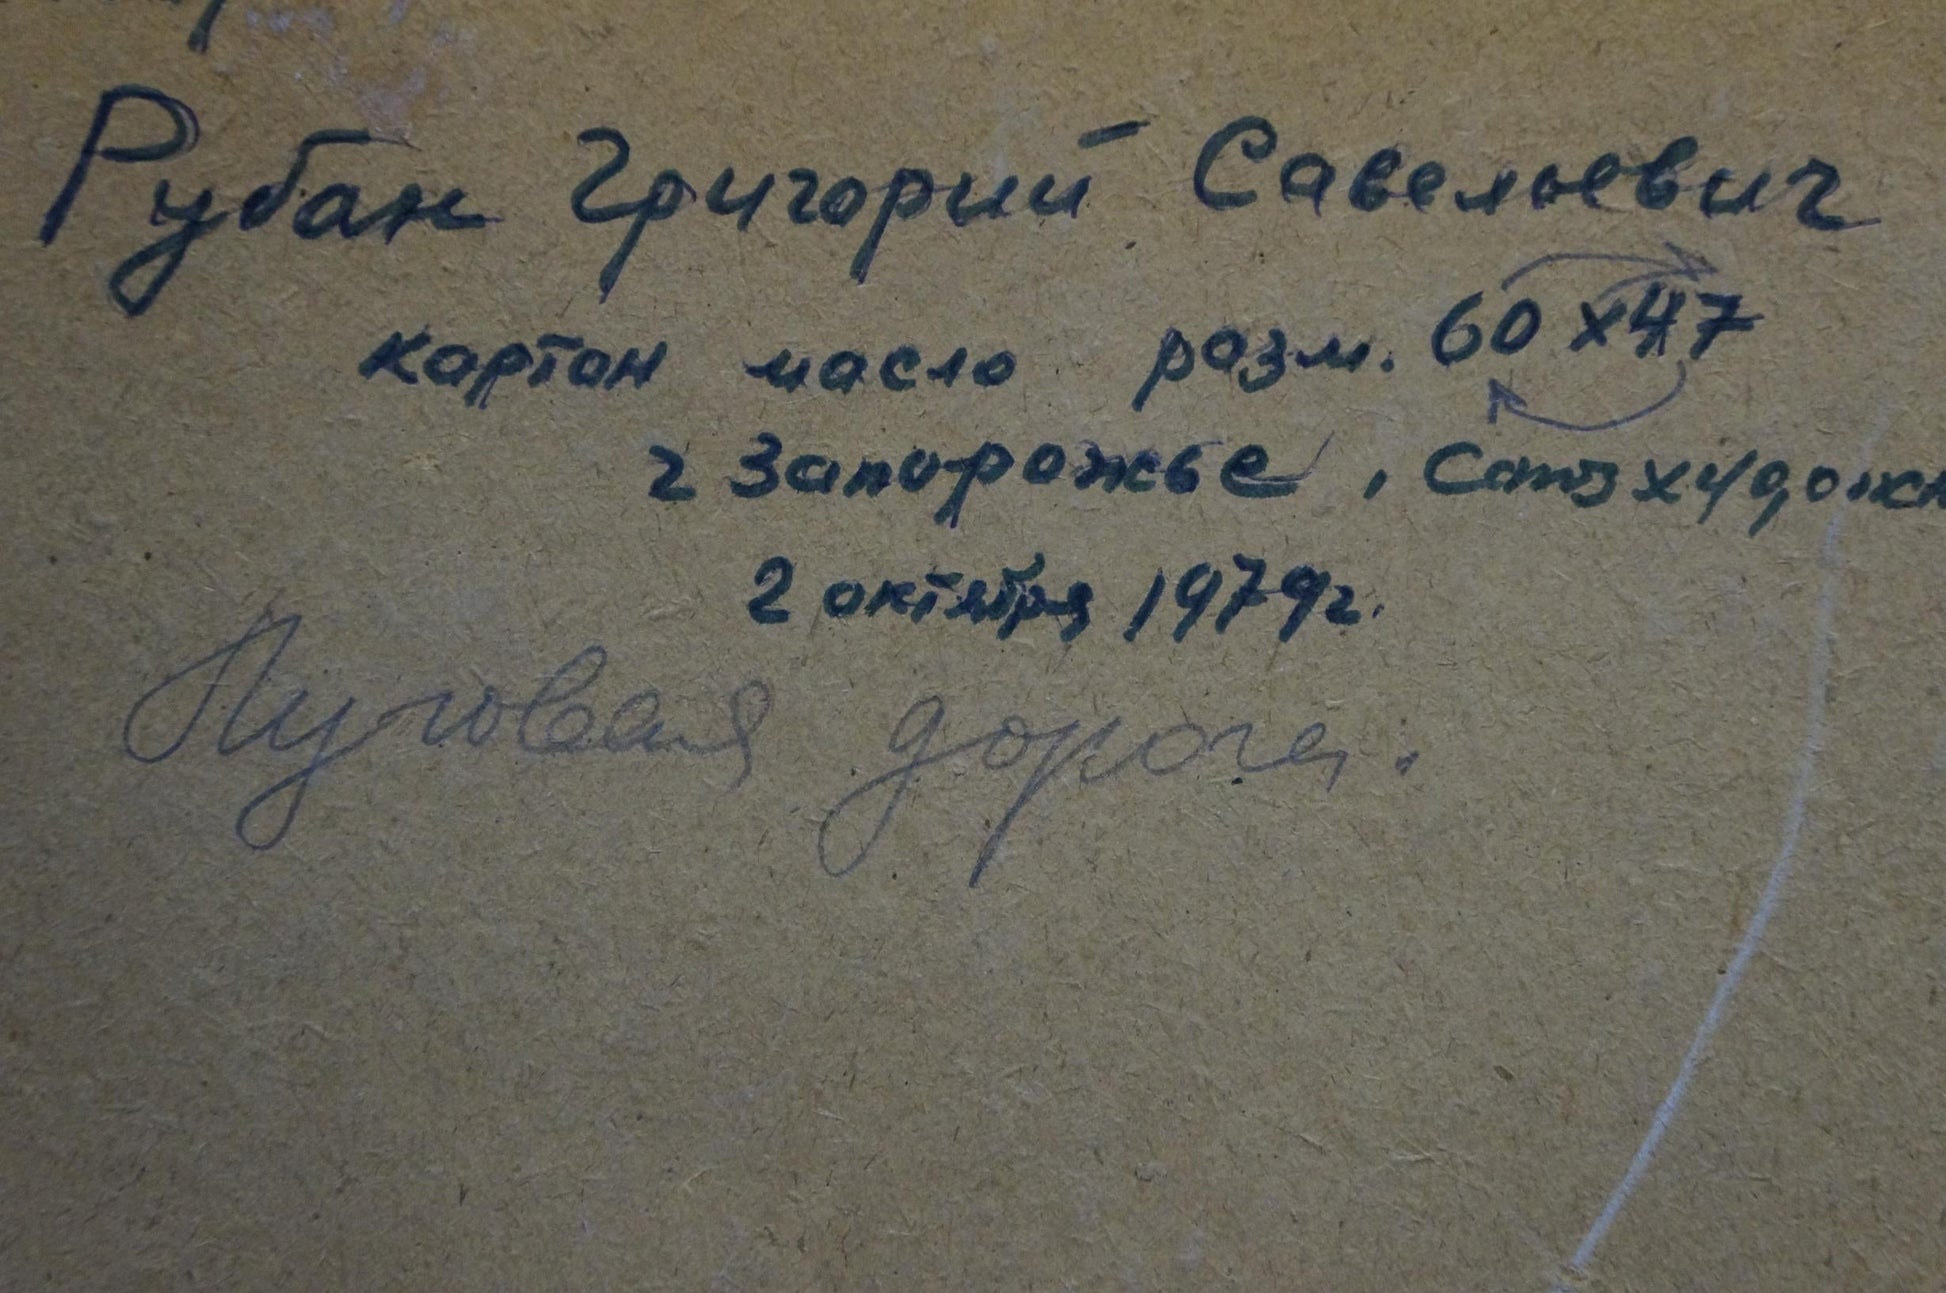 Рубан Григорий Савельевич
картон масло разм. 60 х 47
г Запорожье, Союз художн
2 октября 1979г.
Луговая дорога.